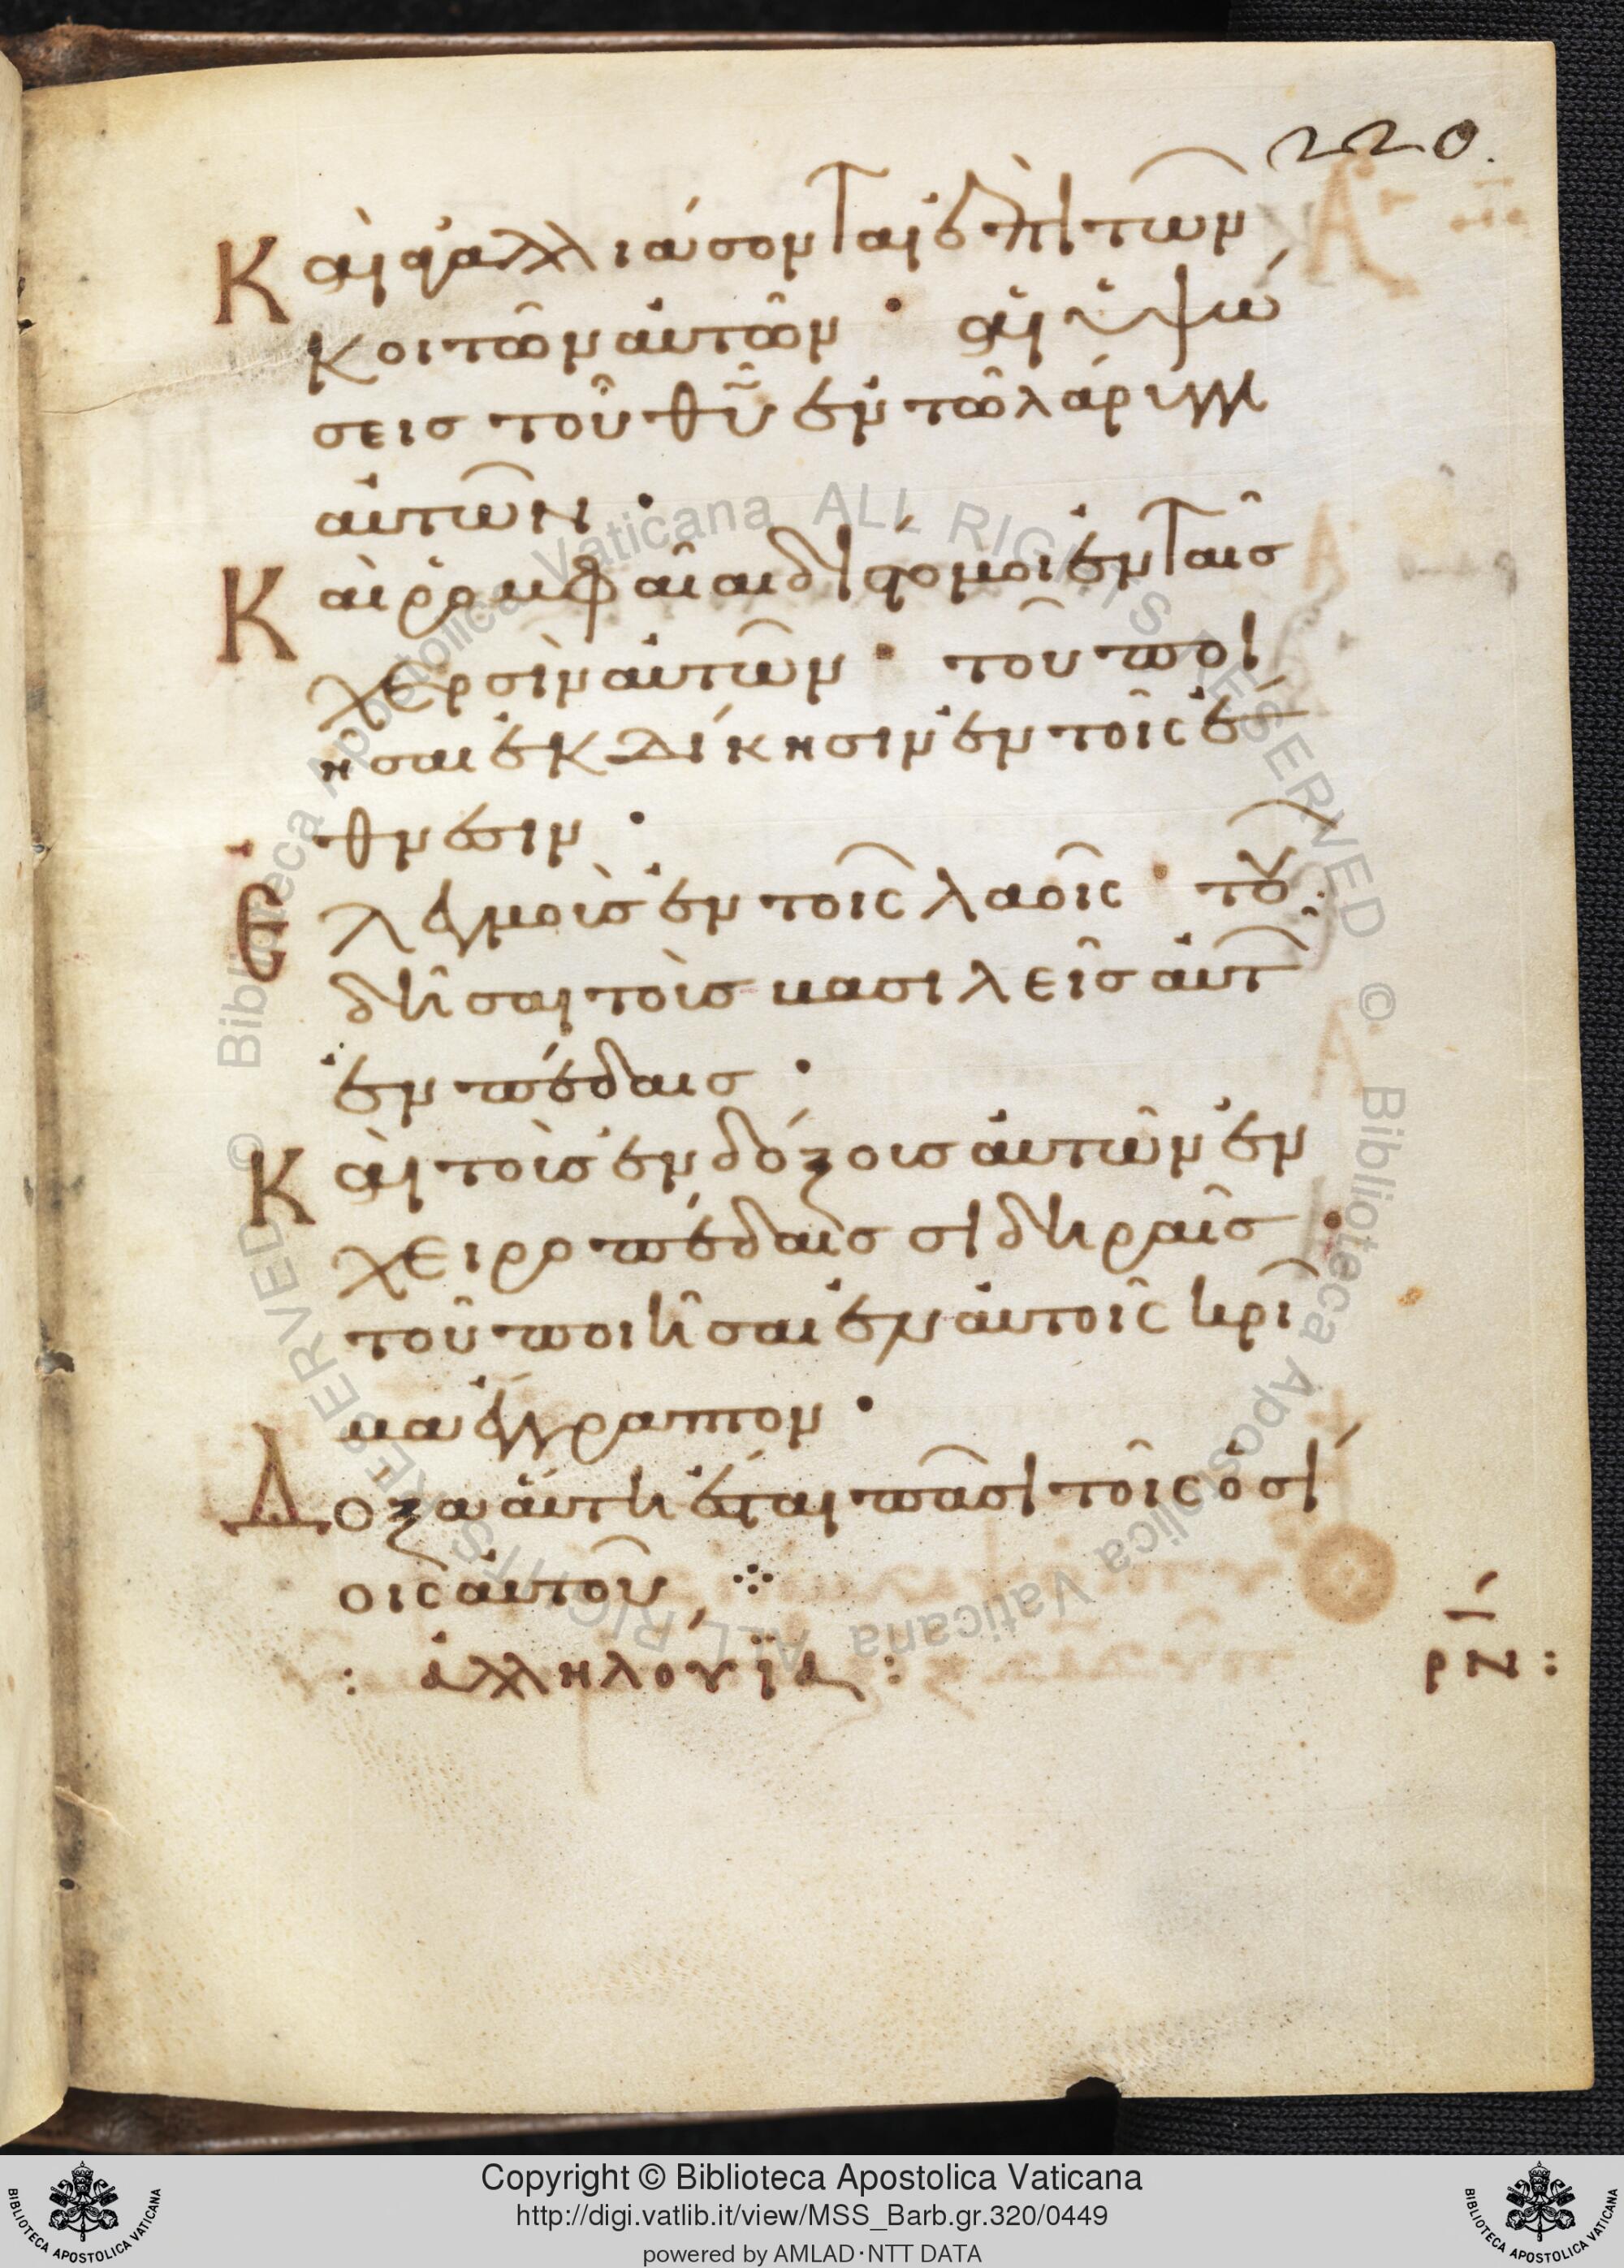 220.
Καὶ ἀγαλλιάσονται ἐπὶ τῶν
κοιτῶν αὐτῶν · αἱ ὑψώ
σεις τοῦ θυ̅ ἐν τῶ λάρυγγι
αὐτῶν ·
Καὶ ῥομφαῖαι δίστομοι ἐν ταῖς
χερσὶν αὐτῶν · τοῦ ποι
ῆσαι ἐκδίκησιν ἐν τοῖς ἔ
θνεσιν ·
Ελεγμοὺς ἐν τοῖς λαοῖς · τοῦ
δῆσαι τοὺς βασιλεῖς αὐτ
ἐν πέδαις ·
Καὶ τοὺς ἐνδόξους αὐτῶν ἐν
χειροπέδαις σιδηραῖς ·
τοῦ ποιῆσαι ἐν αὐτοῖς κρί
μα ἔγγραπτον ·
Δόξα αὕτη ἔσται πᾶσι τοῖς ὁσί
οις αὐτοῦ ⁘
: ἀλληλούϊα : ρν :
Copyright © Biblioteca Apostolica Vaticana
http://digi.vatlib.it/view/MSS_Barb.gr.320/0449
powered by AMLAD·NTT DATA
BIBLIOTECA APOSTOLICA VATICANA
BIBLIOTECA APOSTOLICA VATICANA
© Biblioteca Apostolica Vaticana ALL RIGHTS RESERVED © Biblioteca Apostolica Vaticana ALL RIGHTS RESERVED